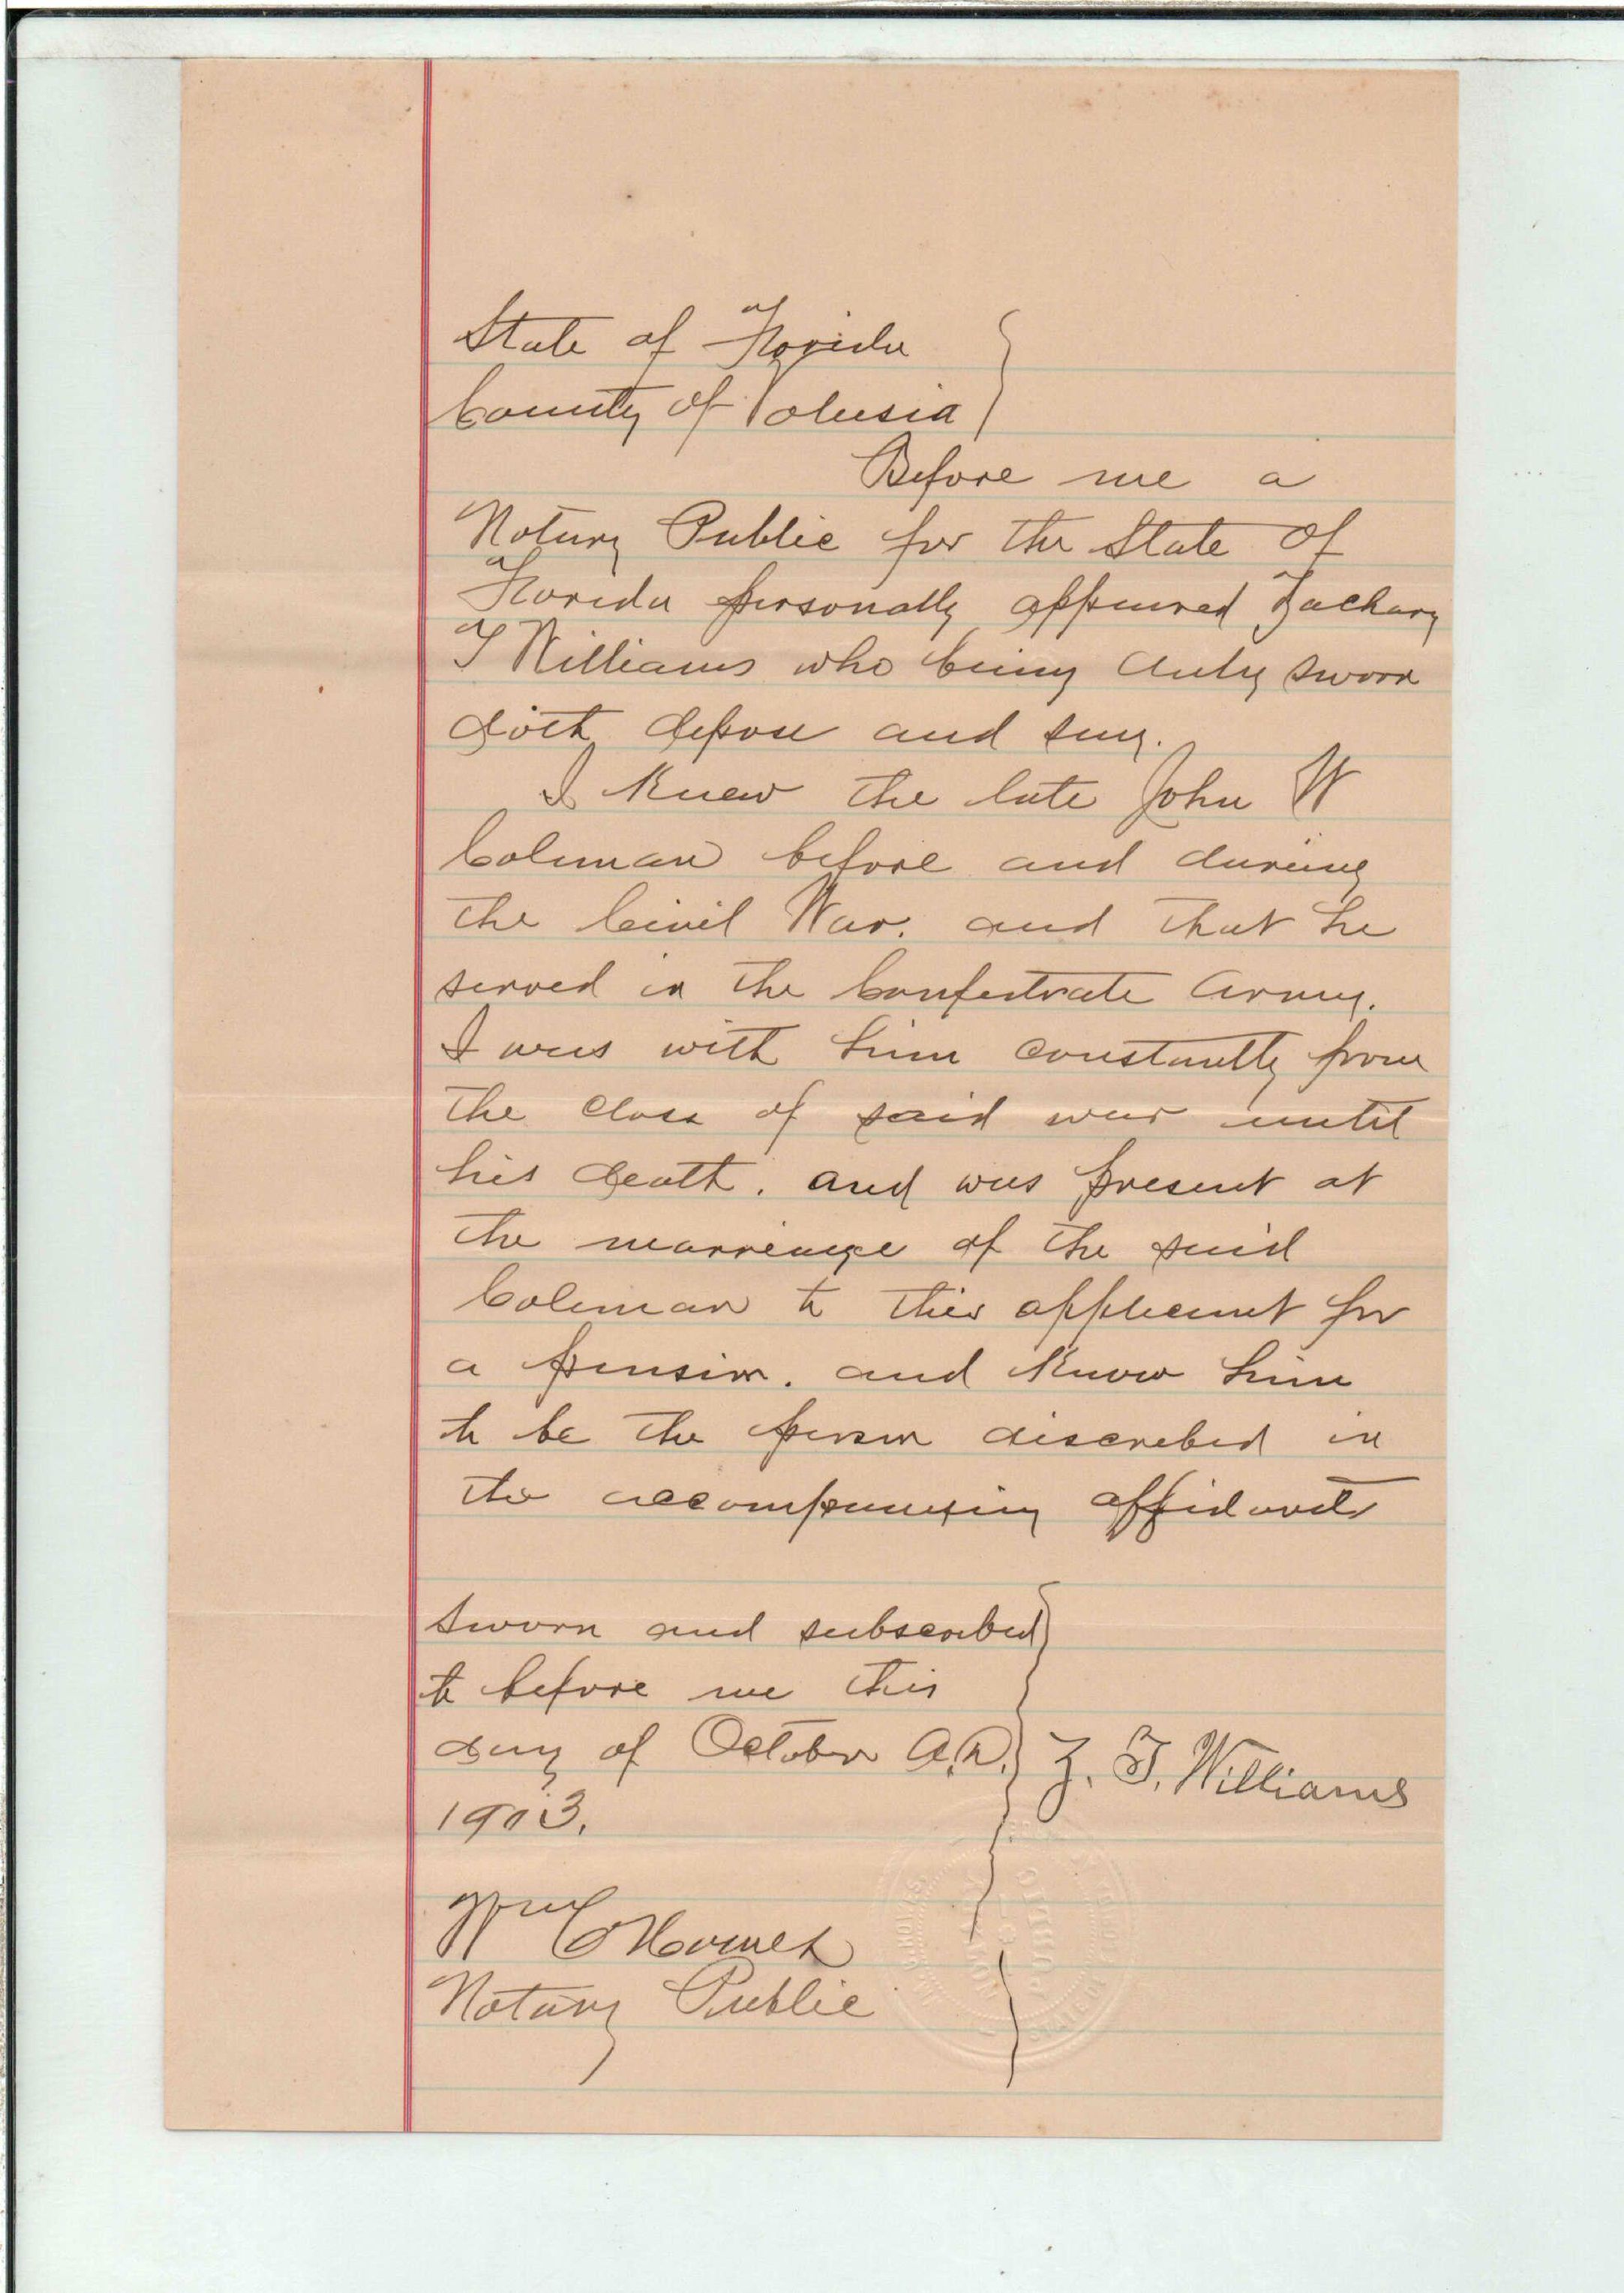 State of Florida
County of Volusia
Before me a
Notary Public for the State of
Florida personally appeared Zachary
T Williams who being duly sworn
doth depose and say.
I knew the late John W
Coleman before and during
the Civil War. and that he
served in the Confedrate Army.
I was with him constantly from
the close of said war until
his death. and was present at
the marriage of the said
Coleman to this applicant for
a pension. and know him
to be the person discrebed in
the accompanying affidavits
Sworn and subscribed
to before me this
day of October A.D.
1903.
Z. T. Williams
Wm C
Notary Public
NOTARY
PUBLIC